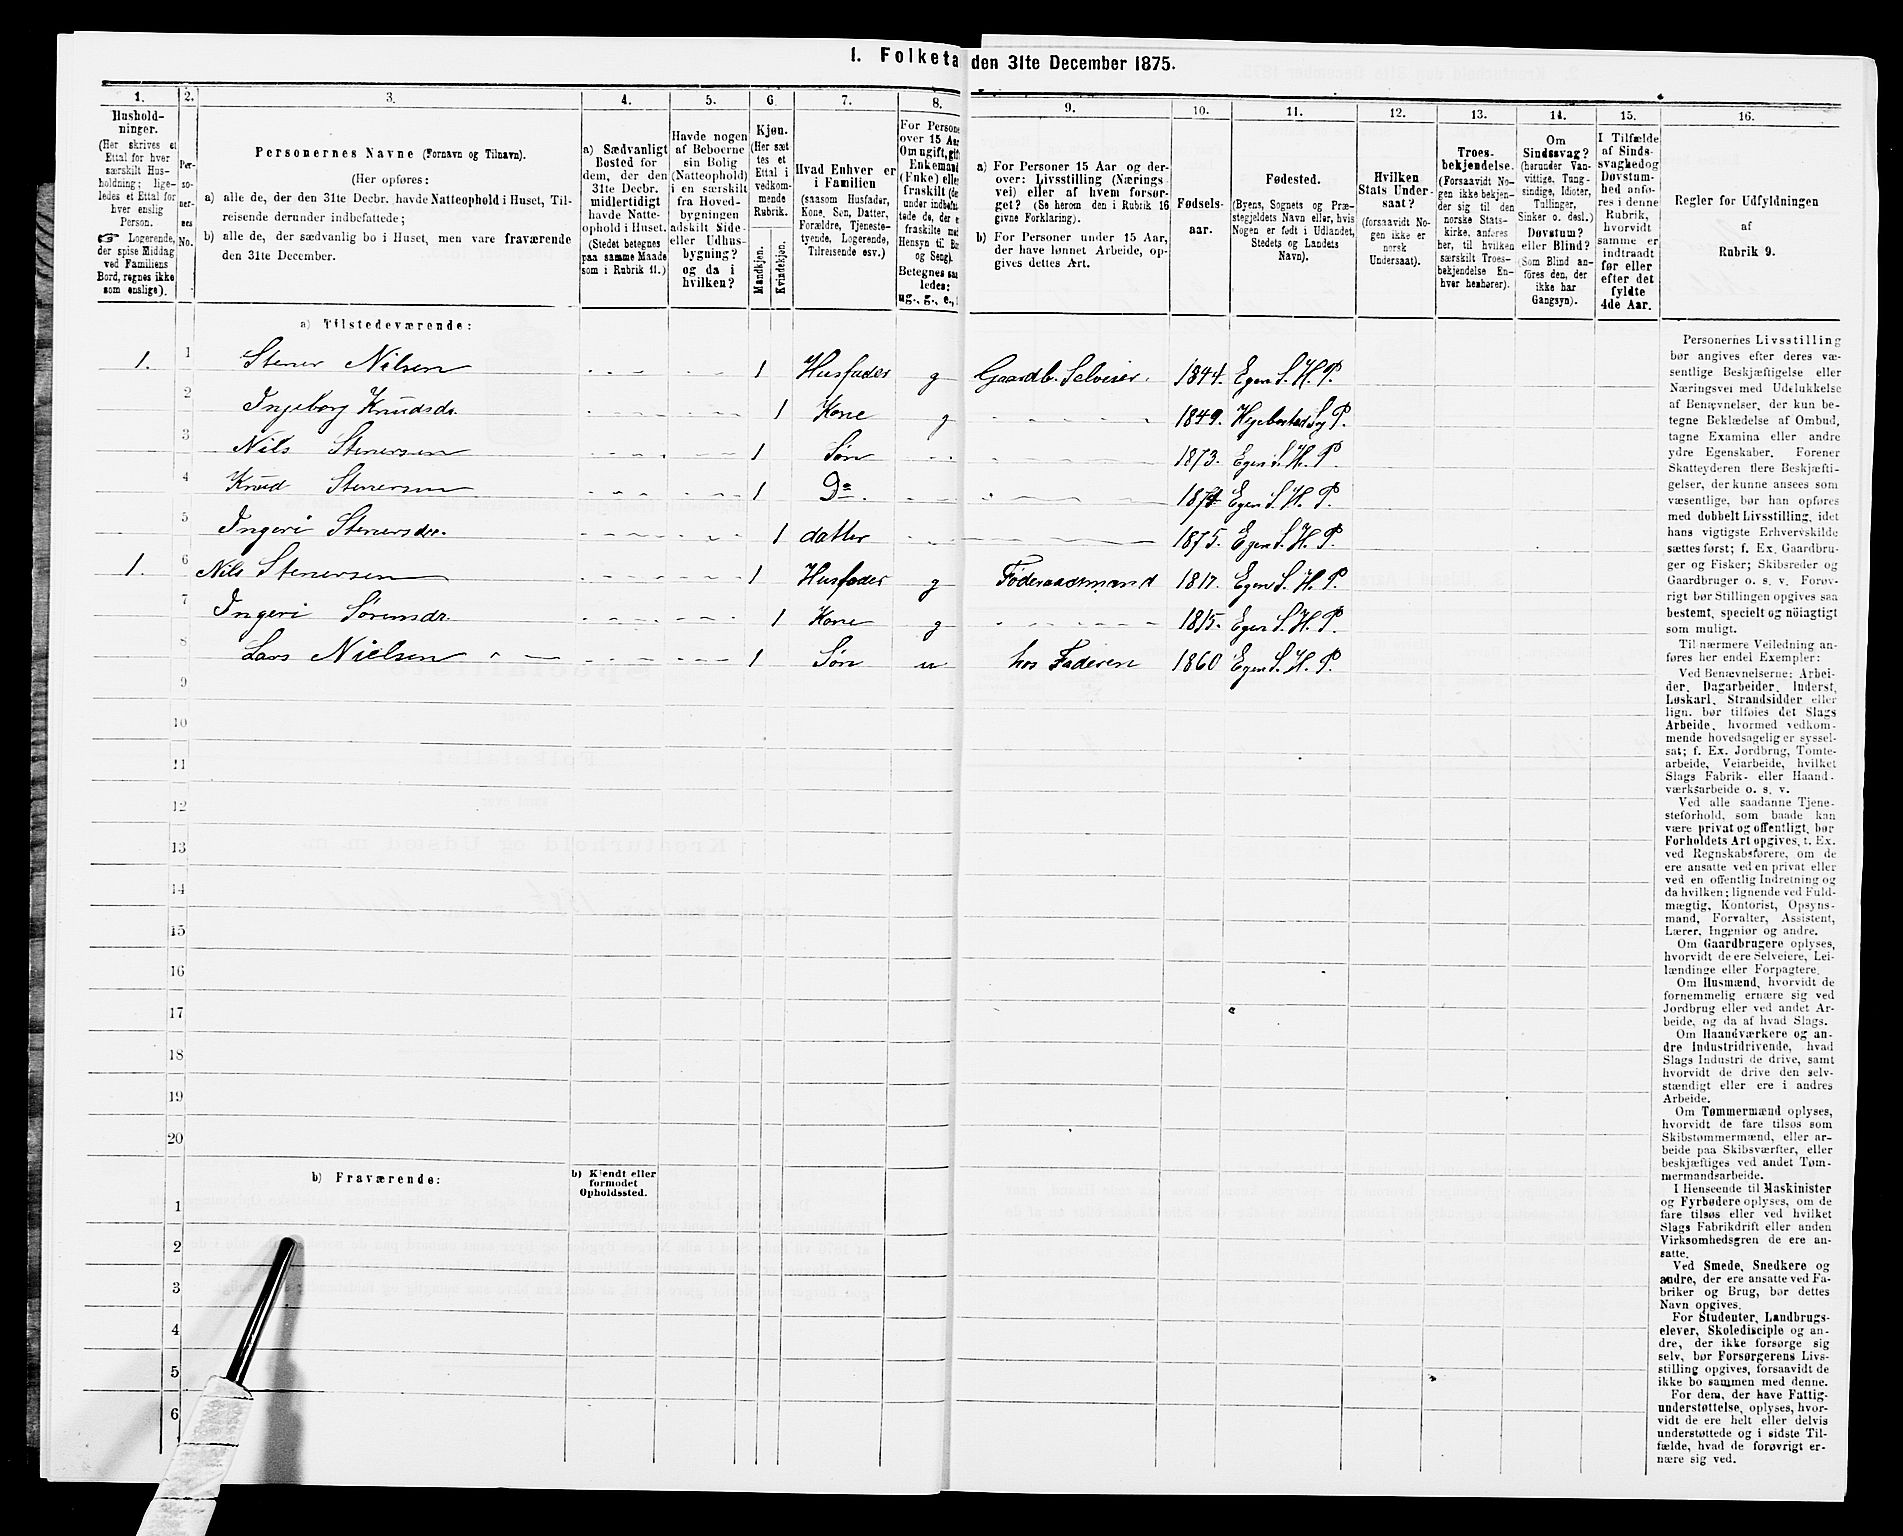 1. Folketa den 31te December 1875.
1. 2. 3. 4. 5. 6. 7. 8. 9. 10. 11. 12. 13. 14. 15. 16.
Hushold-
ninger.
(Her skrives et
Ettal for hver
særskilt Hus-
holdning; lige-
ledes et Ettal for
hver enslig
Person.
☞ Logerende,
der spise Middag
ved Familiens
Bord, regnes ikke
som enslige).
Per-
so-
ner-
nes
No.
Personernes Navne (Fornavn og Tilnavn).
(Her opføres:
a) alle de, der den 31te Decbr. havde Natteophold i Huset, Til-
reisende derunder indbefattede;
b) alle de, der sædvanlig bo i Huset, men vare fraværende
den 31te December.
a) Sædvanligt
Bosted for
dem, der den
31te Decbr.
midlertidigt
havde Natte-
ophold i Huset.
(Stedet betegnes
paa samme Maade
som i Rubrik 11.)
Havde nogen
af Beboerne
sin Bolig
(Natteophold)
i en særskilt
fra Hoved-
bygningen
adskilt Side-
eller Udhus-
bygning?
og da i
hvilken?
Kjøn.
(Her sæt
tes et
Ettal i
vedkom-
mende
Rubrik.
Mandkjøn.
Kvindekjøn.
Hvad Enhver er
i Familien
(saasom Husfader,
Kone, Søn, Datter,
Forældre, Tjeneste-
tyende, Logerende,
Tilreisende osv.)
For Persone
over 15 Aa
Om ugift, gif
Enkemand
(Enke) elle
fraskilt (de
under indbefa
tede de, der e
fraskilte me
Hensyn til Bo
og Seng).
Betegnes saa
ledes:
ug., g., e., f
a) For Personer 15 Aar og der-
over: Livsstilling (Nærings
vei) eller af hvem forsør-
get? (Se herom den i Rubrik 16
givne Forklaring).
b) For Personer under 15 Aar,
der have lønnet Arbeide, op-
gives dettes Art.
Fødsels-
aar.
Fødested.
(Byens, Sognets og Præ-
stegjeldets Navn eller, hvis
Nogen er født i Udlandet,
Stedets og Landets
Navn).
Hvilken
Stats Under-
saat?
(forsaavidt No-
gen ikke er
norsk
Undersaat).
Troes-
bekjendelse.
(Forsaavidt No-
gen ikke bekjen-
der sig til den
norske Stats-
kirke, anføres
her, til hvilken
særskilt Troes-
bekjendelse En-
hver henhører).
Om
Sindssvag?
(herunder Van-
vittige, Tung-
sindige, Idioter,
Tullinger,
Sinker o. desl.)
Døvstum?
eller Blind?
(Som Blind an-
føres den, der
ikke har
Gangsyn).
I Tilfælde
af Sinds-
svaghedog
Døvstum-
hed anfø-
res i denne
Rubrik,
hvorvidt
samme er
indtraadt
før eller
efter det
fyldte
4de Aar.
Regler for Udfyldningen
af
Rubrik 9.
a) Tilstedeværende:
1. 1 Stener Nilsen 1 Husfader g Gaardb. Selveier. 1844. Egen S. H. P.
2 Ingeborg Knudsdr. 1 Kone g 1849. Hegebostad S. og P.
3 Nils Stenersen 1 Søn 1873. Egen S. H. P.
4 Knud Stenersen 1 Do. 1874 Egen S. H. P.
5 Ingeri Stenersdr. 1 datter 1875. Egen S. H. P.
1. 6 Nils Stenersen 1 Husfader g Føderaadsmand 1817. Egen S. H. P.
7 Ingeri Sørensdr. 1 Kone g 1815. Egen S. H. P.
8 Lars Nielsen 1 Søn u hos Faderen 1860 Egen S. H. P.
9
10
11
12
13
14
15
16
17
18
19
20
b) Fraværende:
b) Kjendt eller
formodet
Opholdssted.
1
2
3
4
5
6
Personernes Livsstilling
bør angives efter deres væ-
sentlige Beskjæftigelse eller
Næringsvei med Udelukkelse
af Benævnelser, der kun be-
tegne Beklædelse af Ombud,
tagne Examina eller andre
ydre Egenskaber. Forener
Skatteyderen flere Beskjæfti-
gelser, der kunne ansees som
væsentlige, bør han opføres
med dobbelt Livsstilling, idet
hans vigtigste Erhvervskilde
sættes først; f. Ex. Gaardbru-
ger og Fisker; Skibsreder og
Gaardbruger o. s. v. Forøv-
rigt bør Stillingen opgives saa
bestemt, specielt og nöiagtigt
som muligt.
Til nærmere Veiledning an-
føres her endel Exempler:
Ved Benævnelserne: Arbei-
der, Dagarbeider, Inderst,
Løskarl, Strandsidder eller
lign. bør tilføies det Slags
Arbeide, hvormed vedkom-
mende hovedsagelig er syssel-
sat; f. Ex. Jordbrug, Tomte-
arbeide, Veiarbeide, hvilket
Slags Fabrik- eller Haand-
værksarbeide o. s. v.
Ved alle saadanne Tjene-
steforhold, som baade kan
være privat og offentligt, bør
Forholdets Art opgives, t. Ex.
ved Regnskabsførere, om de
ere ansatte ved en privat eller
ved en offentlig Indretning og
da hvilken; lignende ved Fuld-
mægtig, Kontorist, Opsyns-
mand, Forvalter, Assistent,
Lærer, Ingeniør og andre.
Om Gaardbrugere oplyses,
hvorvidt de ere Selveiere, Lei-
lændinge eller Forpagtere.
Om Husmænd, hvorvidt de
fornemmelig ernære sig ved
Jordbrug eller ved andet Ar-
beide, og da af hvad Slags.
Om Haandværkere og an-
dre Industridrivende, hvad
Slags Industri de drive, samt
hvorvidt de drive den selv-
stændigt eller ere i andres
Arbeide.
Om Tømmermænd oplyses,
hvorvidt de fare tilsøs som
Skibstømmermænd, eller ar-
beide paa Skibsværfter, eller
beskjæftiges ved andet Tøm-
mermandsarbeide.
I Henseende til Maskinister
og Fyrbødere oplyses, om de
fare tilsøs eller ved hvilket
Slags Fabrikdrift eller anden
Virksomhedsgren de ere an-
satte.
Ved Smede, Snedkere og
andre, der ere ansatte ved Fa-
briker og Brug, bør dettes
Navn opgives.
For Studenter, Landbrugs-
elever, Skoledisciple og an-
dre, der ikke forsørge sig
selv, bør Forsørgerens Livs-
stilling opgives, forsaavidt de
ikke bo sammen med denne.
For dem, der have Fattig-
understøttelse, oplyses, hvor-
vidt de ere helt eller delvis
understøttede og i sidste Til-
fælde, hvad de forøvrigt er-
nære sig ved.